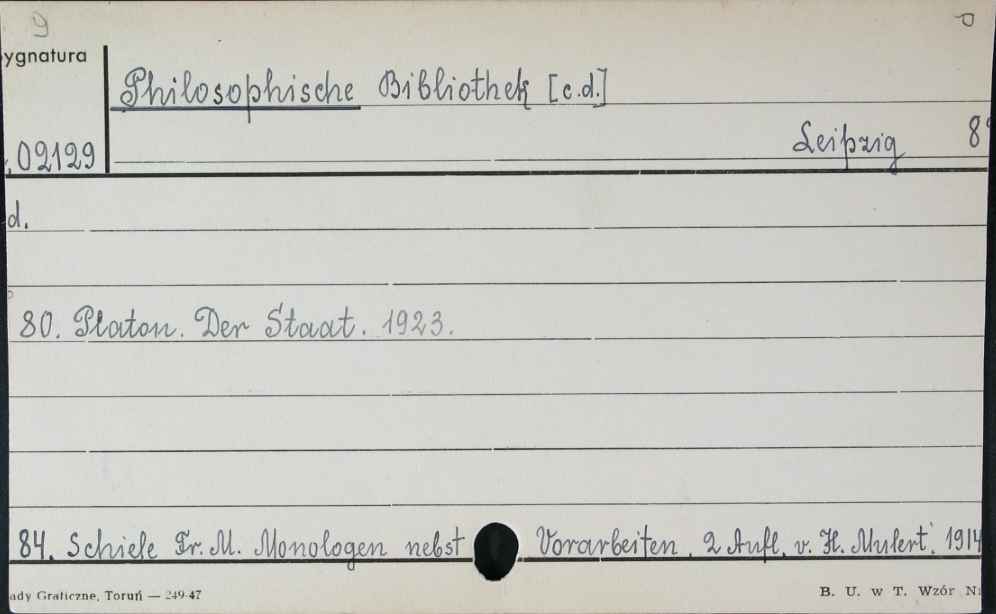 9
ygnatura
Philosophische Bibliothek [c.d.]
Leipzig 8°
02129
d.
80. Platon. Der Staat. 1923.
84. Schiele Fr. M. Monologen nebst Vorarbeiten. 2 Aufl. v. H. Mulert. 1914
ady Graficzne, Toruń — 249-47
B. U. w T. Wzór N